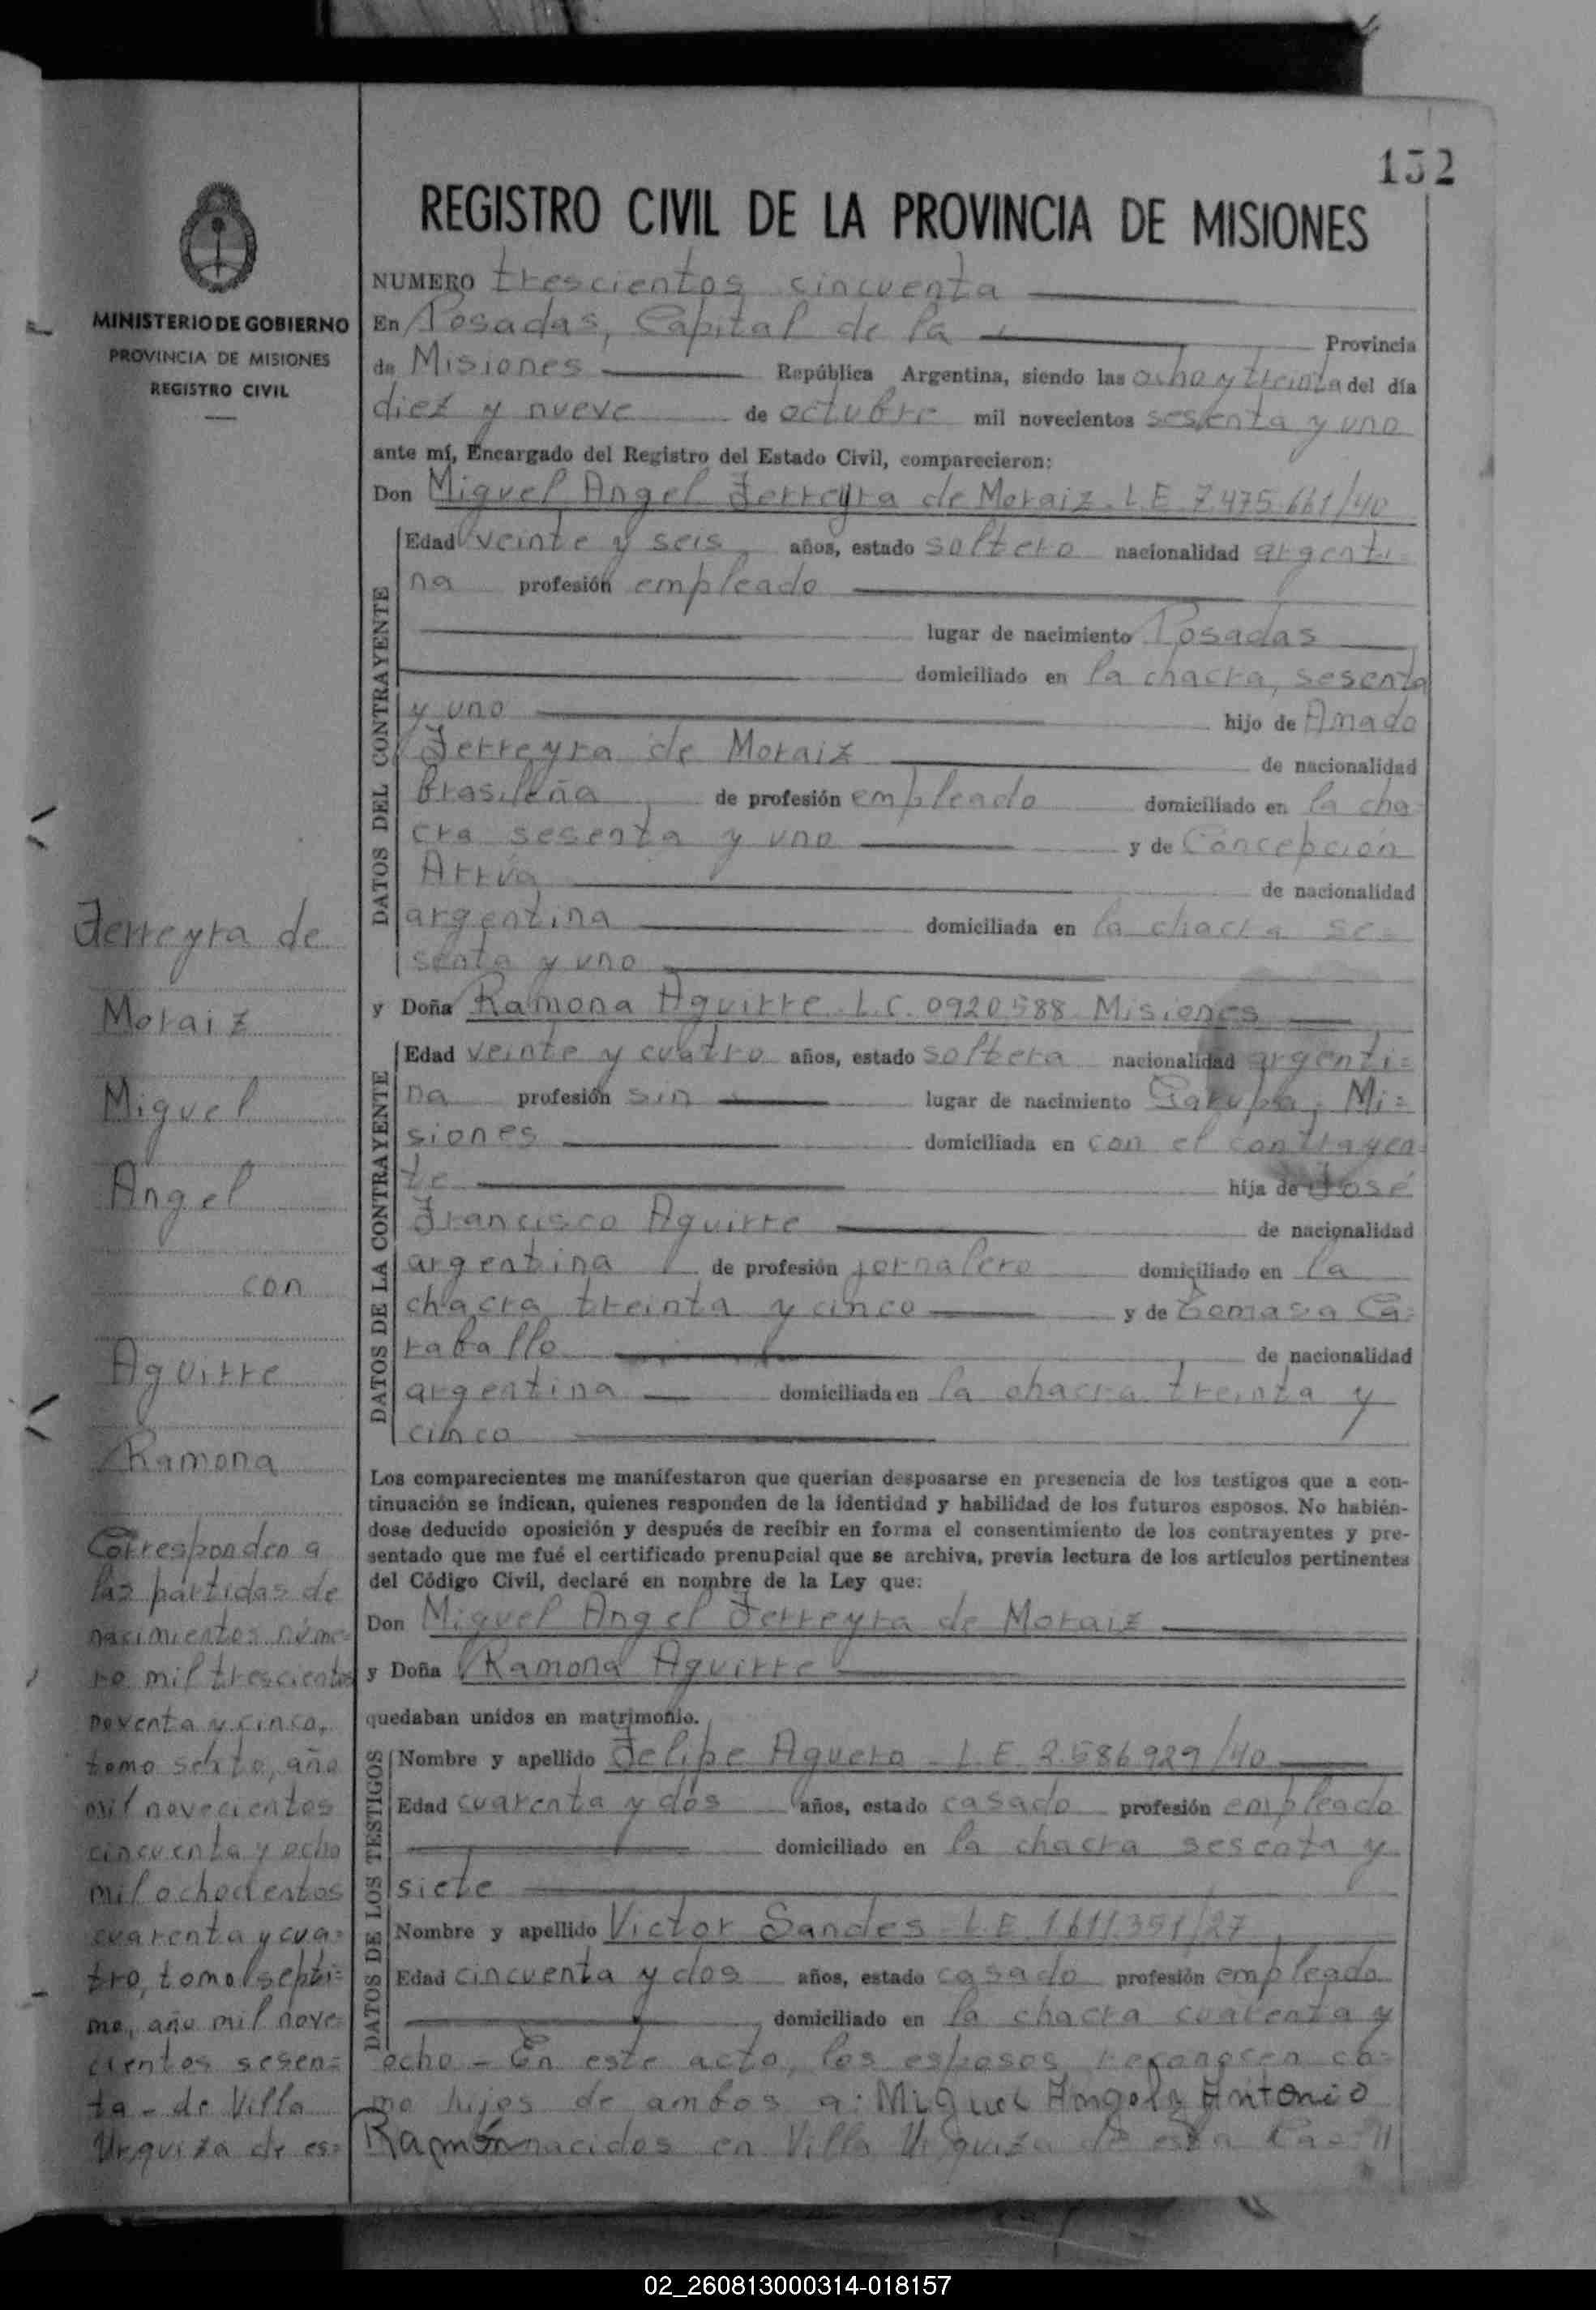 132
REGISTRO CIVIL DE LA PROVINCIA DE MISIONES
MINISTERIO DE GOBIERNO
PROVINCIA DE MISIONES
REGISTRO CIVIL
NUMERO trescientos cincuenta
En Posadas, Capital de la Provincia
de Misiones República Argentina, siendo las ocho y treinta del día
diez y nueve de octubre mil novecientos sesenta y uno
ante mí, Encargado del Registro del Estado Civil, comparecieron:
Don Miguel Angel Ferreyra de Moraiz. L.E. 7.475.661/40
DATOS DEL CONTRAYENTE
Edad veinte y seis años, estado soltero nacionalidad argenti=
na profesión empleado
lugar de nacimiento Posadas
domiciliado en la chacra, sesenta
y uno hijo de Amado
Ferreyra de Moraiz de nacionalidad
brasileña de profesión empleado domiciliado en la cha=
cra sesenta y uno y de Concepción
Arrúa de nacionalidad
argentina domiciliada en la chacra se=
senta y uno
y Doña Ramona Aguirre. L.C. 0920588 Misiones
DATOS DE LA CONTRAYENTE
Edad veinte y cuatro años, estado soltera nacionalidad argenti=
na profesión sin lugar de nacimiento Garupa, Mi=
siones domiciliada en con el contrayen=
te hija de José
Francisco Aguirre de nacionalidad
argentina de profesión jornalero domiciliado en la
chacra treinta y cinco y de Tomasa Ca=
raballo de nacionalidad
argentina domiciliada en la chacra treinta y
cinco
Los comparecientes me manifestaron que querían desposarse en presencia de los testigos que a con-
tinuación se indican, quienes responden de la identidad y habilidad de los futuros esposos. No habién-
dose deducido oposición y después de recibir en forma el consentimiento de los contrayentes y pre-
sentado que me fué el certificado prenupcial que se archiva, previa lectura de los artículos pertinentes
del Código Civil, declaré en nombre de la Ley que:
Don Miguel Angel Ferreyra de Moraiz
y Doña Ramona Aguirre
quedaban unidos en matrimonio.
DATOS DE LOS TESTIGOS
Nombre y apellido Felipe Aguero - L.E. 2.586.929/40
Edad cuarenta y dos años, estado casado profesión empleado
domiciliado en la chacra sesenta y
siete
Nombre y apellido Victor Sandes - L.E. 1.611.351/27
Edad cincuenta y dos años, estado casado profesión empleado
domiciliado en la chacra cuarenta y
ocho - En este acto, los esposos reconocen co=
mo hijos de ambos a: Miguel Angel y Antonio
Ramón nacidos en Villa Urquiza de esta Ca= //
Ferreyra de
Moraiz
Miguel
Angel
con
Aguirre
Ramona
Corresponden a
las partidas de
nacimientos núme=
ro mil trescientos
noventa y cinco,
tomo sexto, año
mil novecientos
cincuenta y ocho
mil ochocientos
cuarenta y cua=
tro, tomo septi=
mo, año mil nove=
cientos sesen=
ta - de Villa
Urquiza de es=
02_260813000314-018157